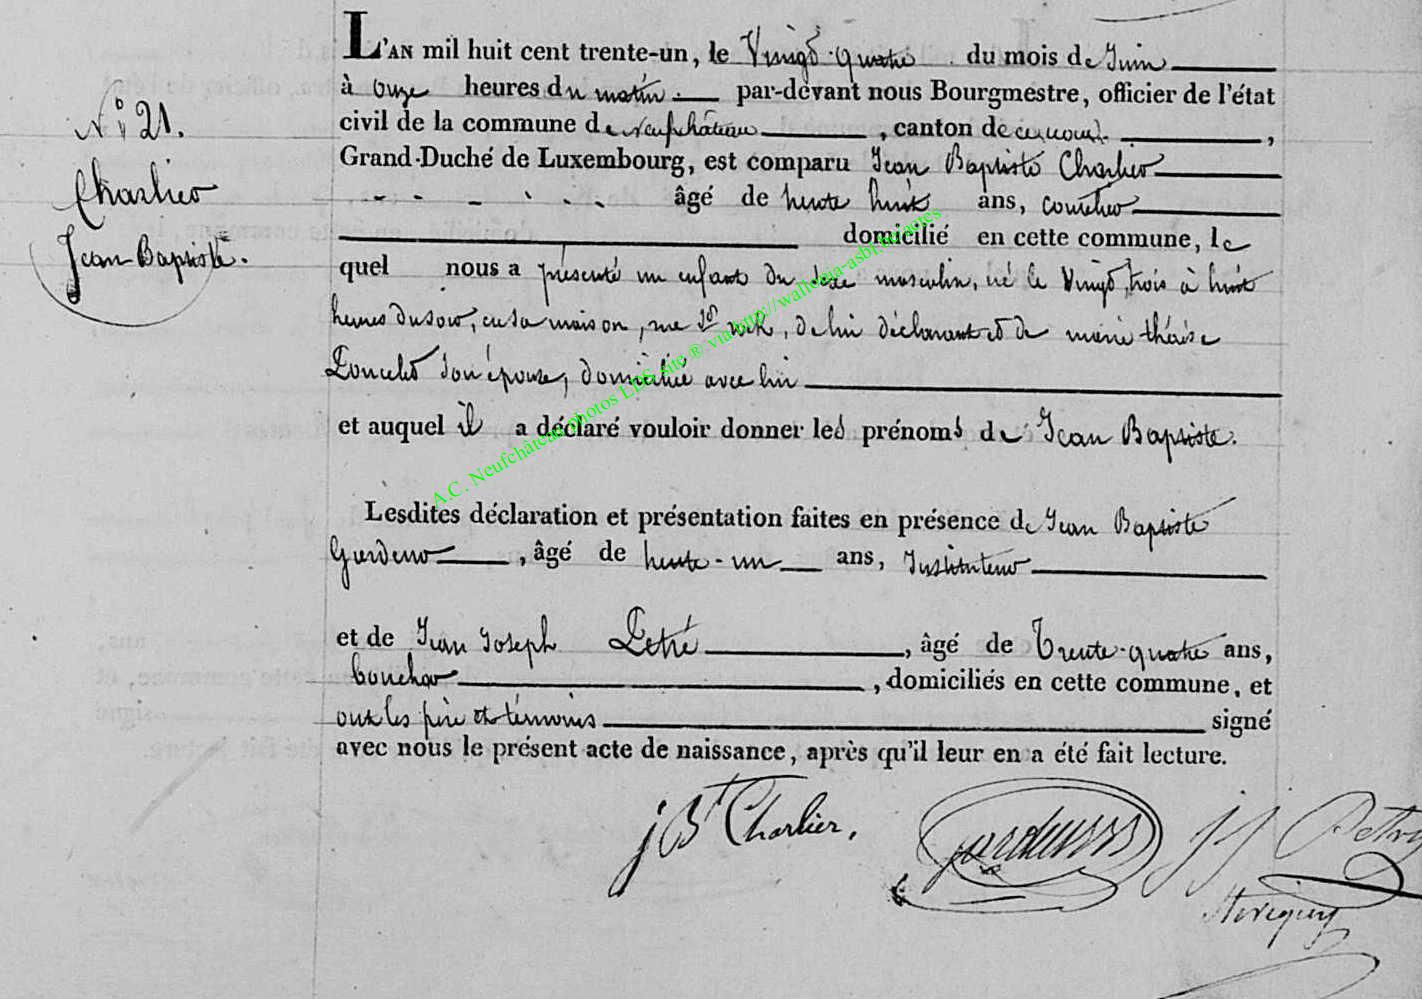 L'AN mil huit cent trente-un, le Vingt-quatre du mois de Juin
à onze heures du matin par-devant nous Bourgmestre, officier de l'état
N° 21.
civil de la commune de neufchâteau, canton de ce nom,
Charlier
Grand-Duché de Luxembourg, est comparu Jean Baptiste Charlier
âgé de trente huit ans, courtier
Jean Baptiste.
domicilié en cette commune, le
quel nous a présenté un enfant du sexe masculin, né le Vingt trois à huit
heures du soir, en sa maison, rue de lui déclarant et de marie thérèse
Poncelet son épouse, domiciliée avec lui
et auquel il a déclaré vouloir donner les prénoms de Jean Baptiste.
A.C. Neufchâteau photos LDG site ® via http://wallonia-asbl.be/actes
Lesdites déclaration et présentation faites en présence de Jean Baptiste
, âgé de trente-un ans, Instituteur
et de Jean Joseph Petré, âgé de Trente-quatre ans,
boucher, domiciliés en cette commune, et
ont les père et témoins signé
avec nous le présent acte de naissance, après qu'il leur en a été fait lecture.
J Bt Charlier.